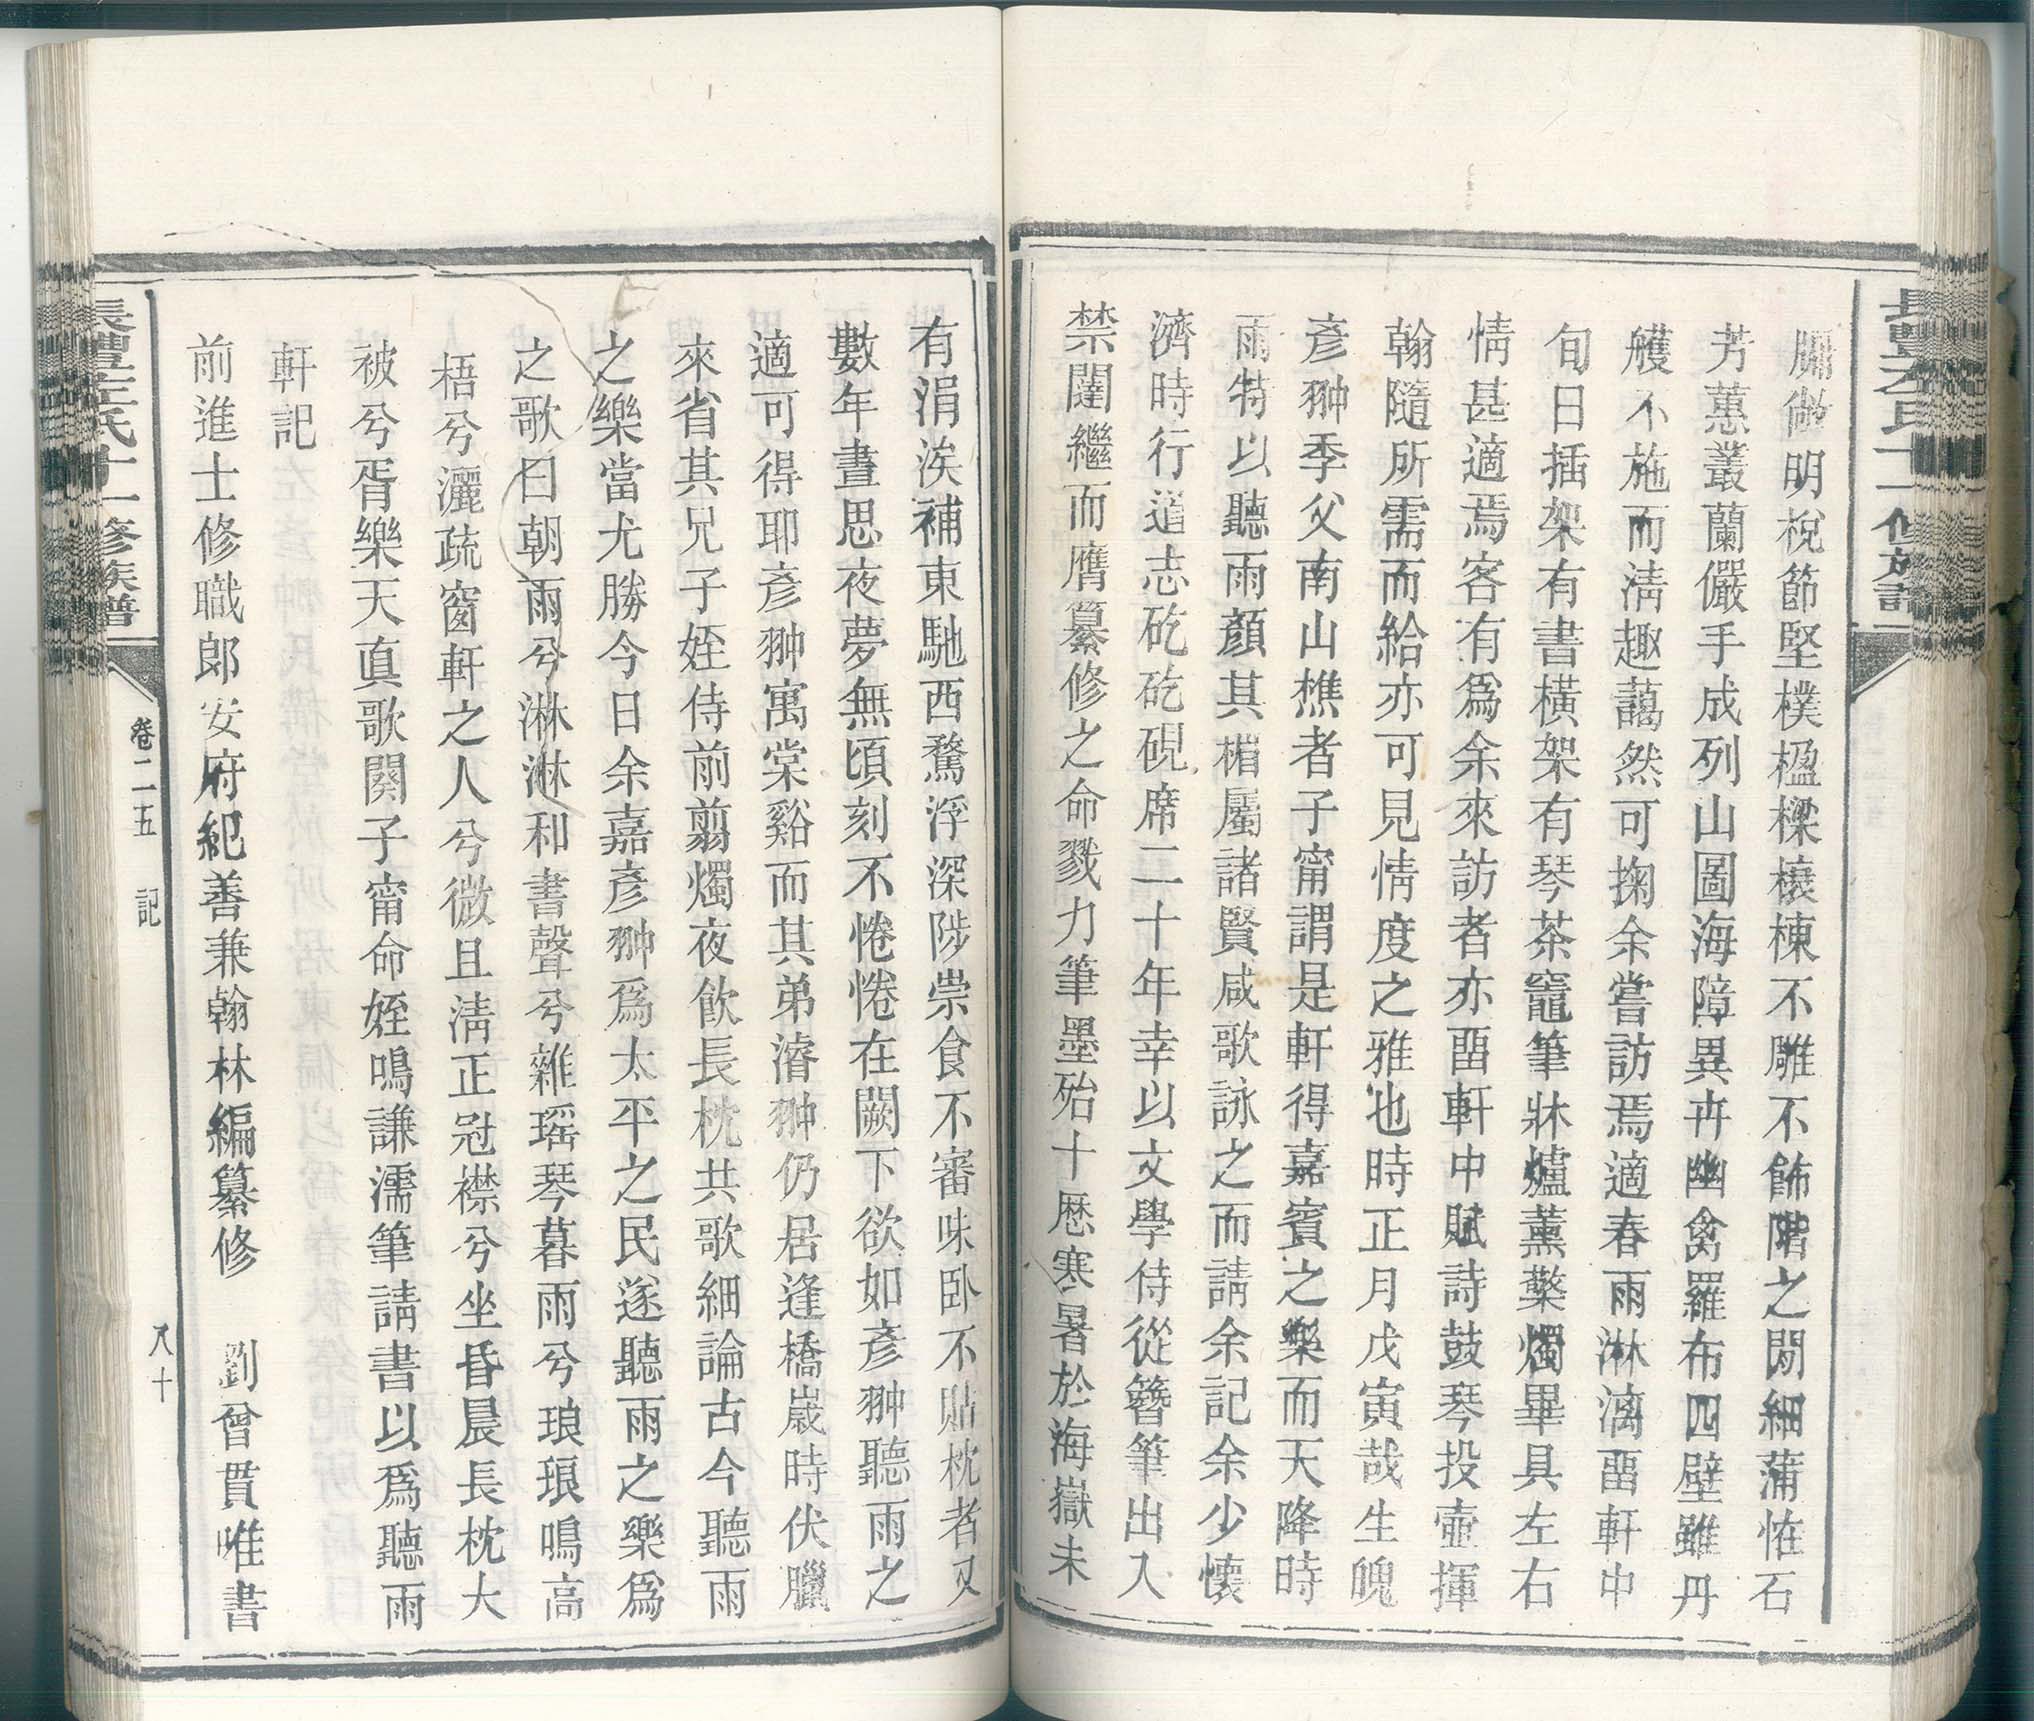 牖僘明梲節堅樸楹樑榱棟不雕不飾階之閒細蒲怪石
芳蕙叢蘭儼手成列山圖海障異卉幽禽羅布四壁雖丹
艧不施而淸趣藹然可掬余嘗訪焉適春雨淋漓畱軒中
旬日插架有書橫架有琴茶竈筆牀爐薰檠燭畢具左右
情甚適焉客有爲余來訪者亦畱軒中賦詩鼓琴投壺揮
翰隨所需而給亦可見情度之雅也時正月戊寅哉生魄
彥翀季父南山樵者子甯謂是軒得嘉賓之樂而天降時
雨特以聽雨顏其楣屬諸賢咸歌詠之而請余記余少懷
濟時行道志矻矻硯席二十年幸以文學侍從簪筆出入
禁闥繼而膺纂修之命戮力筆墨殆十歷寒暑於海嶽未
有涓涘補東馳西騖浮深陟崇食不審味臥不貼枕者又
數年晝思夜夢無頃刻不惓惓在闕下欲如彥翀聽雨之
適可得耶彥翀寓棠谿而其弟濬翀仍居逢橋歲時伏臘
來省其兄子姪侍前翦燭夜飮長枕共歌細論古今聽雨
之樂當尤勝今日余嘉彥翀爲太平之民遂聽雨之樂爲
之歌曰朝雨兮淋淋和書聲兮雜瑤琴暮雨兮琅琅鳴高
梧兮灑疏窗軒之人兮微且淸正冠襟兮坐昏晨長枕大
被兮胥樂天眞歌闋子甯命姪鳴謙濡筆請書以爲聽雨
軒記
前進士修職郎安府紀善兼翰林編纂修　劉曾貫唯書
長豐左氏十一修族譜
卷二五　記
八十